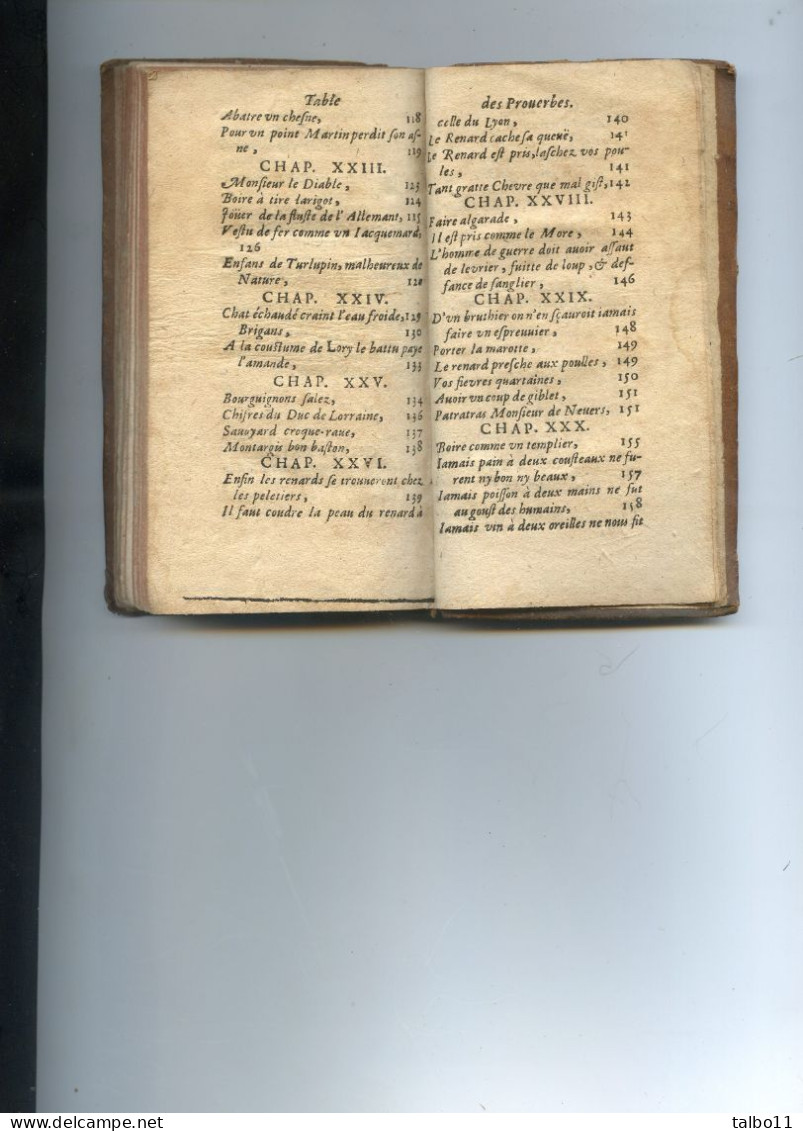 Table
Abatre vn chesne, 118
Pour vn point Martin perdit son as-
ne, 119
CHAP. XXIII.
Monsieur le Diable, 123
Boire à tire larigot, 124
Joüer de la fluste de l'Allemant, 125
Vestu de fer comme vn Iacquemard,
126
Enfans de Turlupin, malheureux de
Nature, 128
CHAP. XXIV.
Chat échaudé craint l'eau froide, 129
Brigans, 130
A la coustume de Lory le battu paye
l'amande, 133
CHAP. XXV.
Bourguignons salez, 134
Chifres du Duc de Lorraine, 136
Sauoyard croque-raue, 137
Montargis bon baston, 138
CHAP. XXVI.
Enfin les renards se trouueront chez
les peletiers, 139
Il faut coudre la peau du renard à
des Prouerbes.
celle du Lyon, 140
Le Renard cache sa queuë, 141
Le Renard est pris, laschez vos pou-
les, 141
Tant gratte Chevre que mal gist, 142
CHAP. XXVIII.
Faire algarade, 143
Il est pris comme le More, 144
L'homme de guerre doit auoir assaut
de levrier, fuitte de loup, & def-
fance de sanglier, 146
CHAP. XXIX.
D'vn bruthier on n'en sçauroit iamais
faire vn espreuuier, 148
Porter la marotte, 149
Le renard presche aux poulles, 149
Vos fievres quartaines, 150
Auoir vn coup de giblet, 151
Patratras Monsieur de Neuers, 151
CHAP. XXX.
Boire comme vn templier, 155
Iamais pain à deux cousteaux ne fu-
rent ny bon ny beaux, 157
Iamais poisson à deux mains ne fut
au goust des humains, 158
Iamais vin à deux oreilles ne nous fit
delcampe.net
talbo11